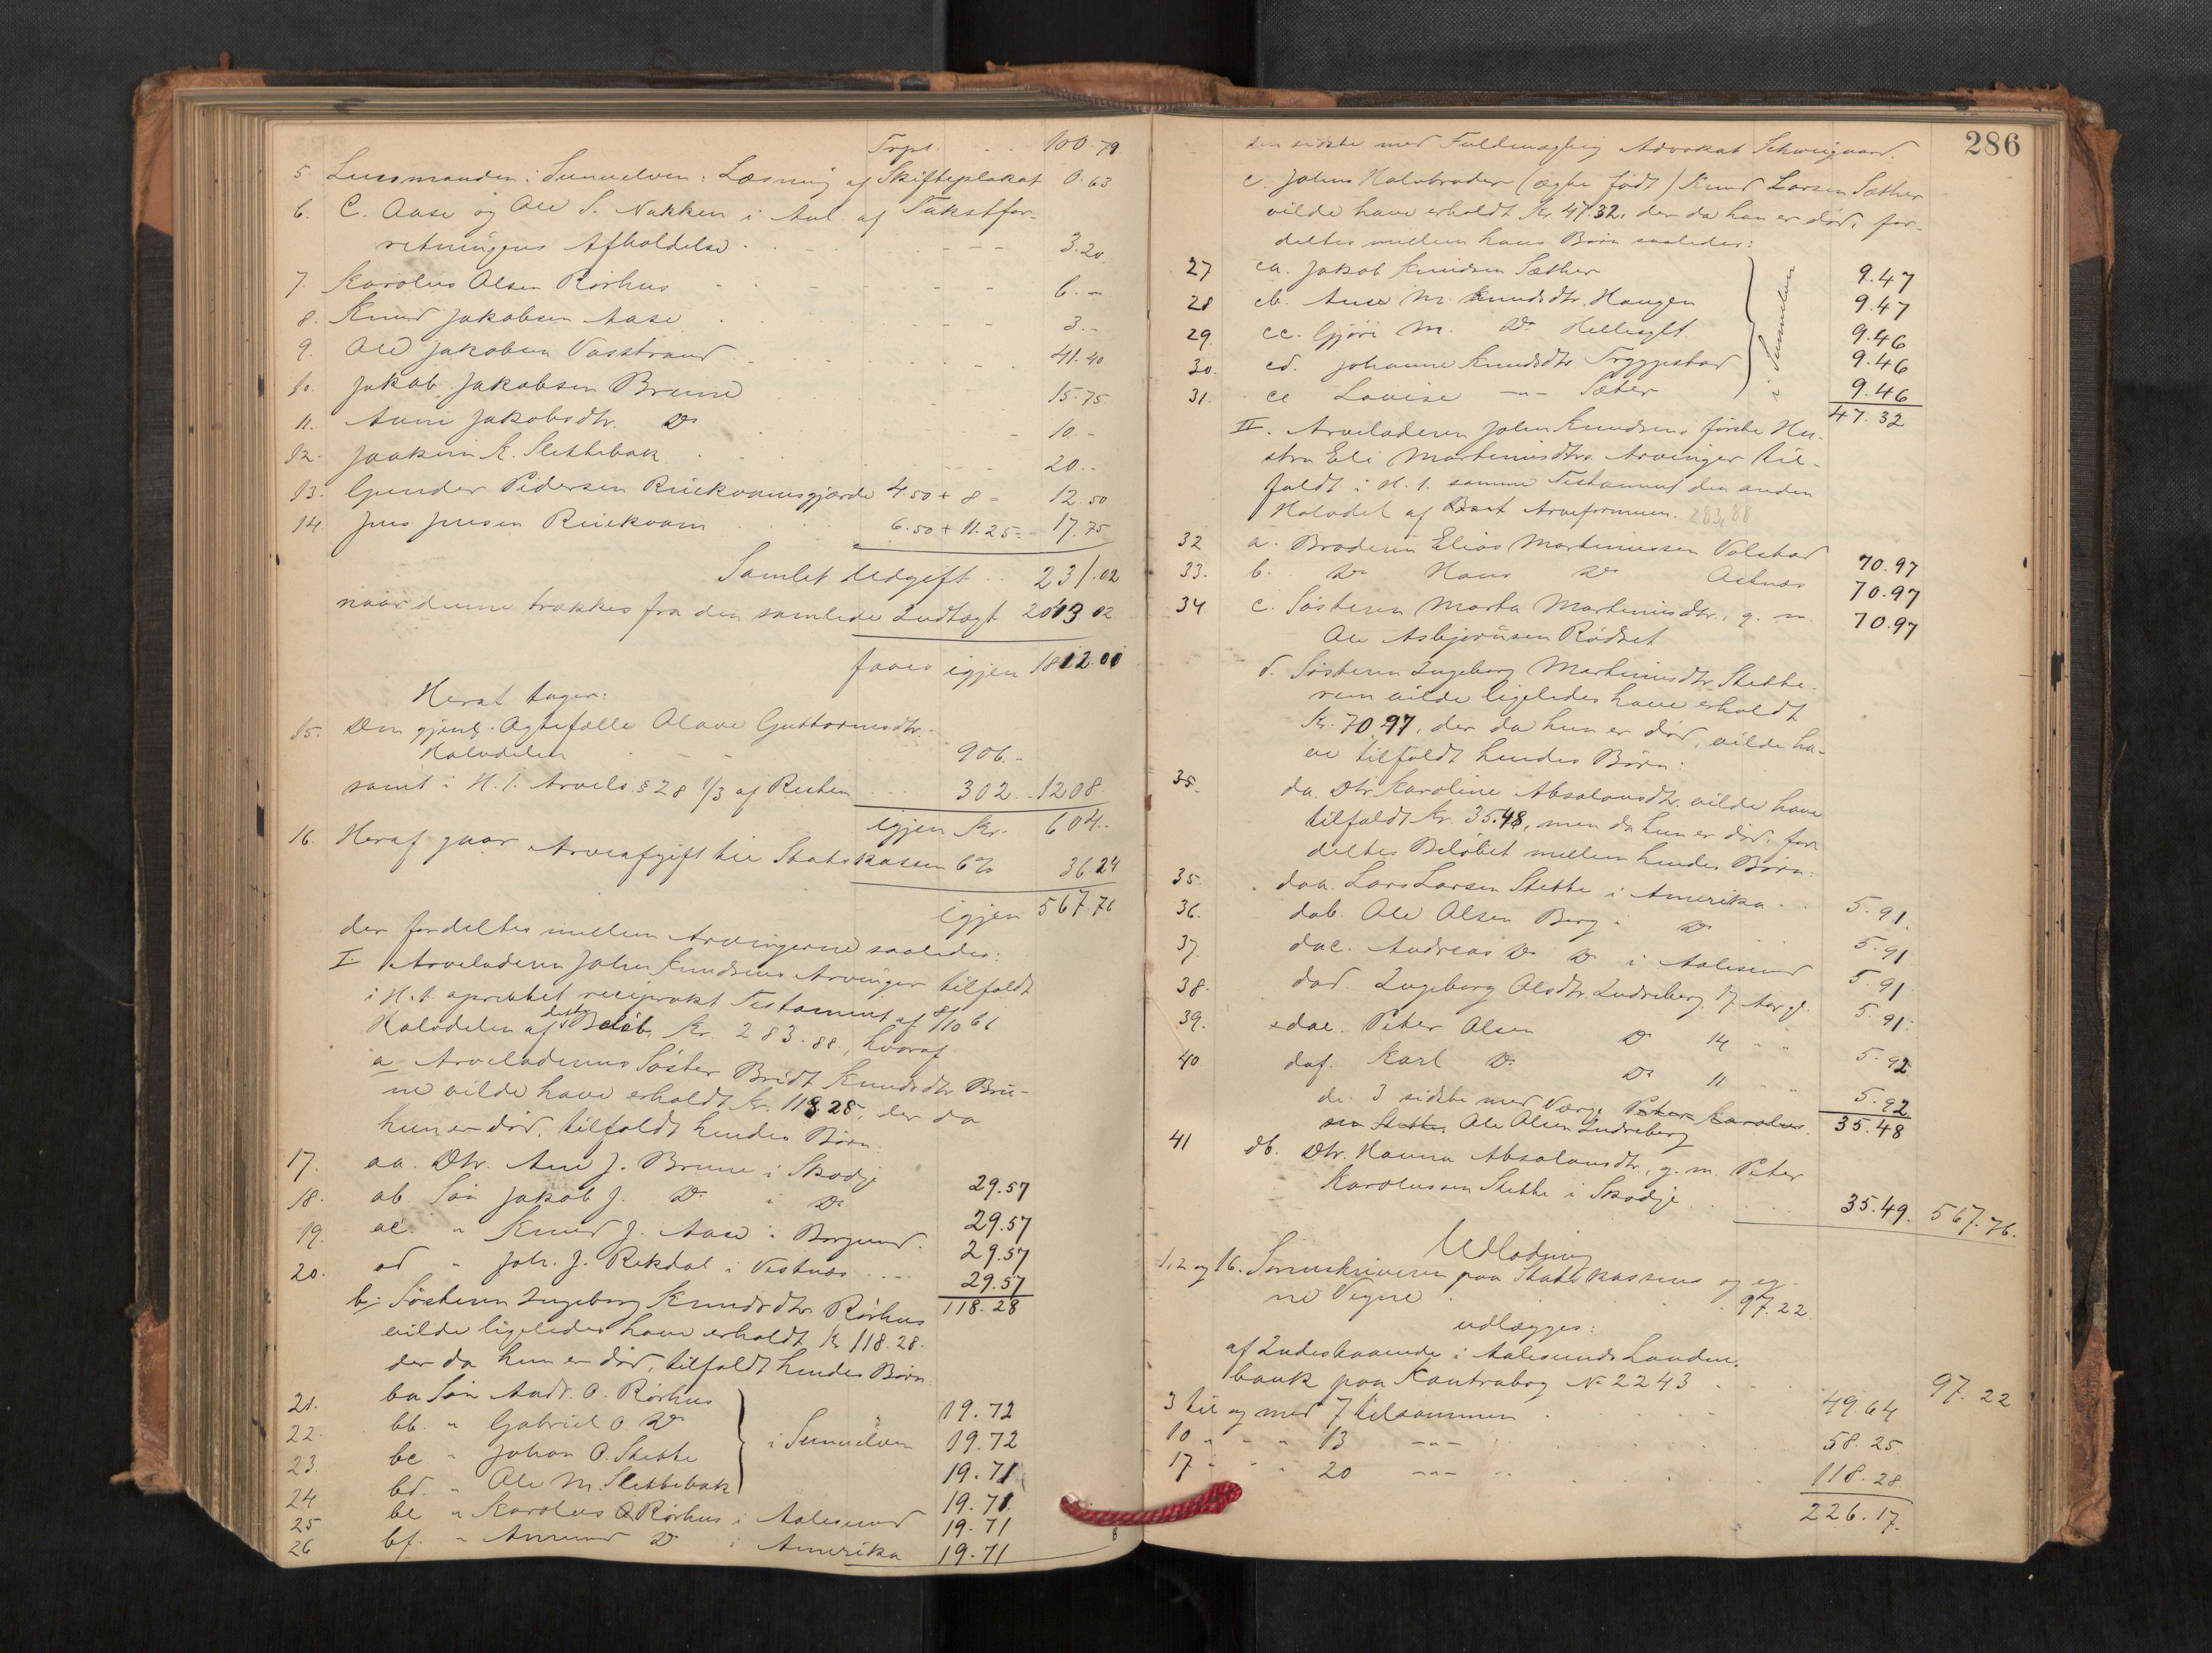 Trpt. 100.79
5. Lensmanden i Sunnelven: Læsning af Skifteplakat 0.63
6. C. Aase og Ole S. Nakken i Anl. af Takstfor-
retningens Afholdelse. 3.20.
7. Karolus Olsen Rørhus 6.-
8. Knud Jakobsen Aase 3.-
9. Ole Jakobsen Vasstrand 41.40
10. Jakob Jakobsen Brune 15.75
11. Anne Jakobsdtr. Do 10.-
12. Joakim K. Slettebak 20.-
13. Gunder Pedersen Riiekvamsgjærde 4.50 + 8 = 12.50
14. Jens Jensen Riiekvam 6.50 + 11.25 = 17.75
Samlet Udgift 231.02
naar denne trækkes fra den samlede Indtægt 2043.02
faaes igjen 1812.00
Heraf tager:
15. Den gjenl. Ægtefælle Olave Guttormsdtr.
Halvdelen 906.-
samt i H. t. Arvels. § 28 1/3 af Resten 302. 1208.
igjen Kr. 604.-
16. Heraf gaar Arveafgift til Statskassen 6% 36.24
igjen 567.76
der fordeltes mellem Arvingerne saaledes:
I. Arveladeren John Knudsens Arvinger tilfaldt
i H. t. oprettet reciprokt Testament af 8/10 61
Halvdelen af dette Beløb, Kr. 283.88, hvoraf
a. Arveladerens Søster Bridt Knudsdtr Bru-
ne vilde have erholdt Kr. 118.28, der da
hun er død, tilfaldt hendes Børn:
17. aa. Dtr. Ane J. Brune i Skodje 29.57
18. ab. Søn Jakob J. Do i Do 29.57
19. ac. " Knud J. Aase i Borgund. 29.57
20. ad " Joh. J. Rekdal i Vestnæs 29.57
118.28
b: Søsteren Ingeborg Knudsdtr Rørhus
vilde ligeledes have erholdt Kr 118.28.
der da hun er død, tilfaldt hendes Børn.
21. ba Søn Andr. O. Rørhus 19.72
22. bb. " Gabriel O Do 19.72
i Sunnelven
23. bc " Johan O. Stette 19.71
24 bd. " Ole M. Slettebak 19.71
25 be " Karolus O Rørhus i Aalesund 19.71
26 bf. " Amund Do i Amerika 19.71
286
den sidste med Fuldmægtig Advokat Schweigaard.
c. Johns Halvbroder (ægte født) Knud Larsen Sæther
vilde have erholdt Kr. 47.32, der da han er død, for-
deltes mellem hans Børn saaledes:
27 ca. Jakob Knudsen Sæther 9.47
28 cb. Anne M. Knudsdtr. Haugen 9.47
29 cc. Gjøri M. Do Hellesylt 9.46
30. cd. Johanne Knudsdtr Tryggestad 9.46
31. ce Lovise -"- Sæter 9.46
i Sunnelven
47.32
II. Arveladeren John Knudsens første Hu-
stru Eli Martinusdtrs Arvinger til-
faldt i H. t. samme Testament den anden
Halvdel af Boets Arveformuen. 283,88
32 a. Broderen Elias Martinussen Valstad 70.97
33. b. Do Hans Do Aasnæs 70.97
34 c. Søsteren Marta Martinusdtr., g. m. 70.97
Ole Asbjørnsen Rødset
d. Søsteren Ingeborg Martinusdtr. Stette.
som vilde ligeledes have erholdt
Kr. 70.97, der da hun er død, vilde ha-
ve tilfaldt hendes Børn:
35. da. Dtr Karoline Absalonsdtr. vilde have
tilfaldt Kr. 35.48, men da hun er død, for
deltes Beløbet mellem hendes Børn:
35 daa. Lars Larsen Stette i Amerika 5.91.
36. dab. Ole Olsen Berg i Do 5.91
37. dac. Andreas Do Do i Aalesund 5.91
38. dad. Ingeborg Olsdtr. Indreberg, 17 Aar gl. 5.91.
39. dae. Peter Olsen Do 14 " " 5.92
40 daf. Karl Do Do 11 " " 5.92
de 3 sidste med Værge Peter Karolus 35.48
sen Stette Ole Olsen Indreberg
41 db. Dtr. Hanna Absalonsdtr., g. m. Peter
Karolussen Stette i Skodje 35.49. 567.76.
Udlodning
1, 2 og 16. Sorenskriveren paa Statskassens og eg-
ne Vegne 97.22
udlægges:
af Indestaaende i Aalesunds Landm.
bank paa Kontrabog No 2243 97.22
3 til og med 7 tilsammen 49.64
10 " " " 13 -"- 58.25
17 " " " 20 -"- 118.28
226.17.